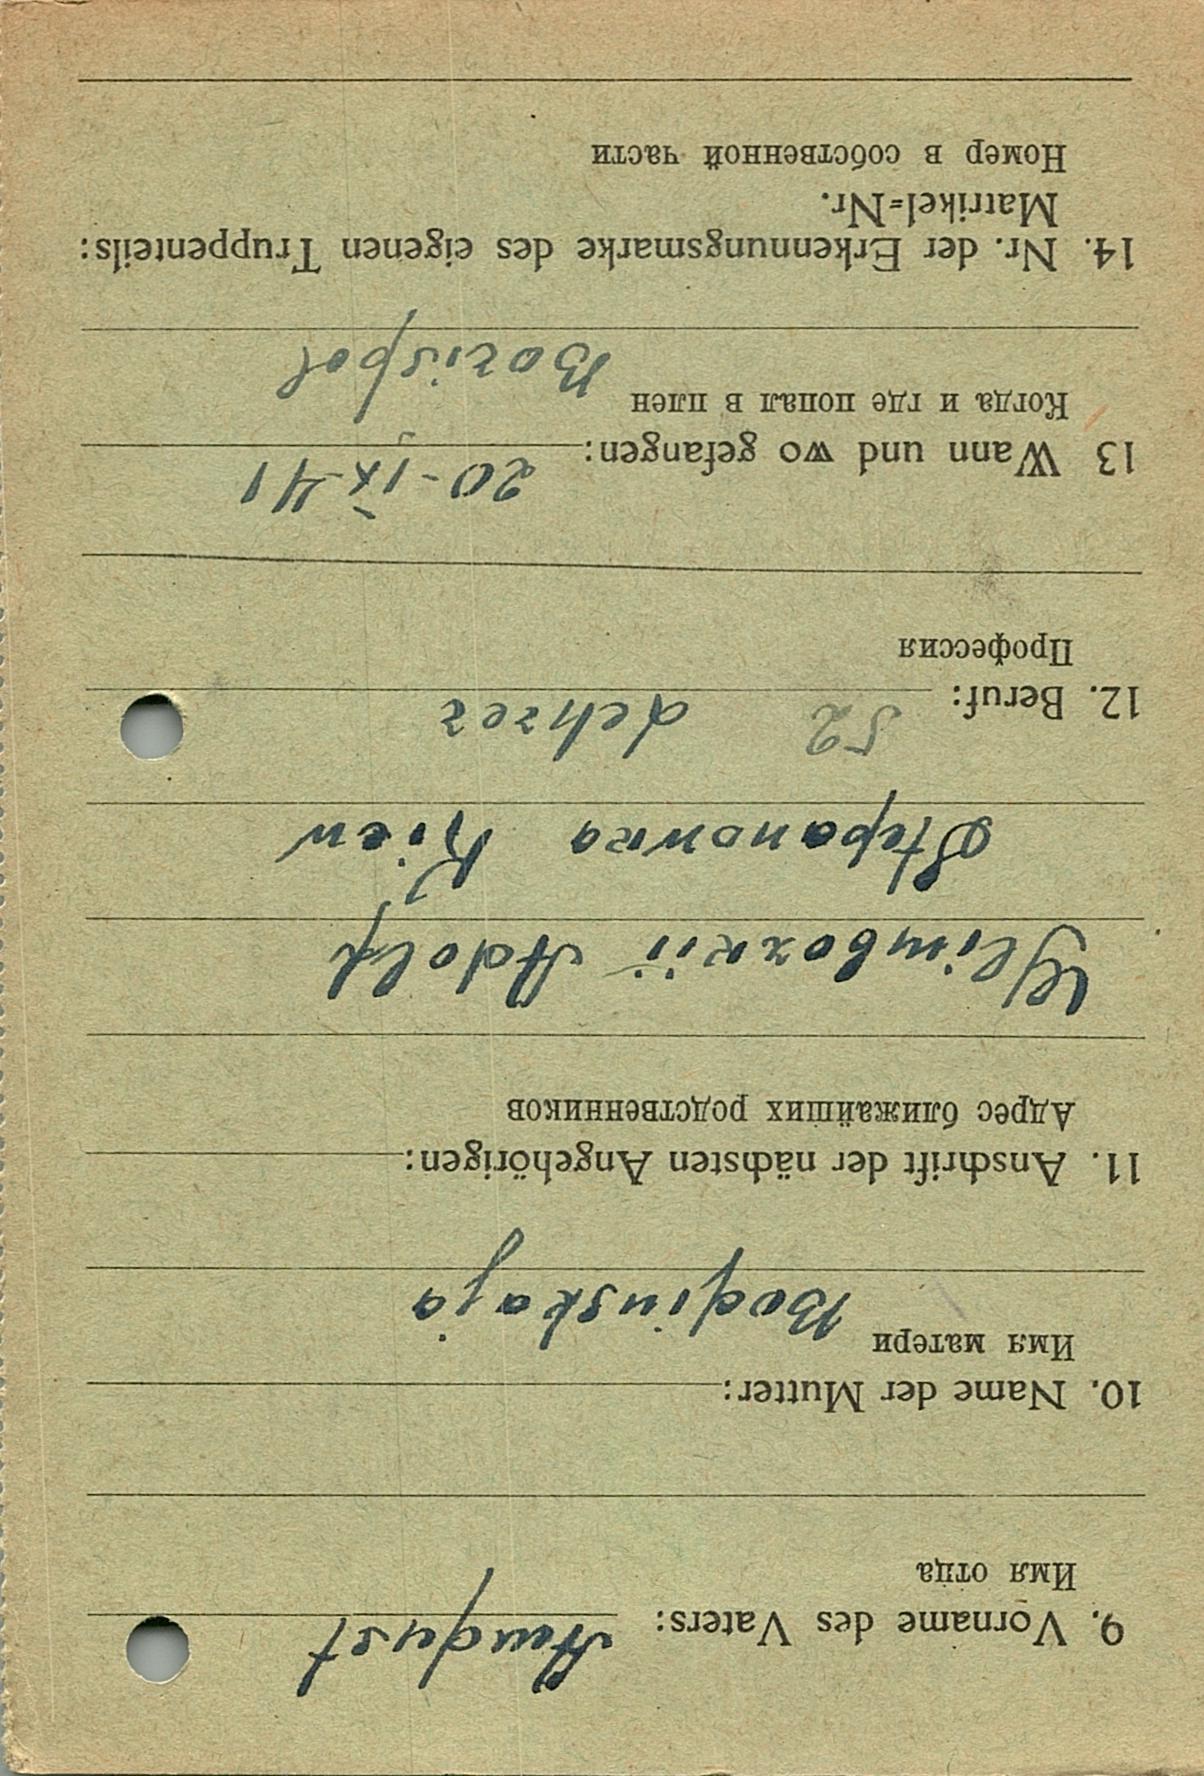 9. Vorname des Vaters: August
Имя отца
10. Name der Mutter:
Имя матери
11. Anschrift der nächsten Angehörigen:
Адрес ближайших родственников
Adolf
Stepanowka Kiew
12. Beruf: 52 Lehrer
Профессия
20-IX-41
13 Wann und wo gefangen:
Когда и где попал в плен Borispol
14. Nr. der Erkennungsmarke des eigenen Truppenteils:
Matrikel=Nr.
Номер в собственной части